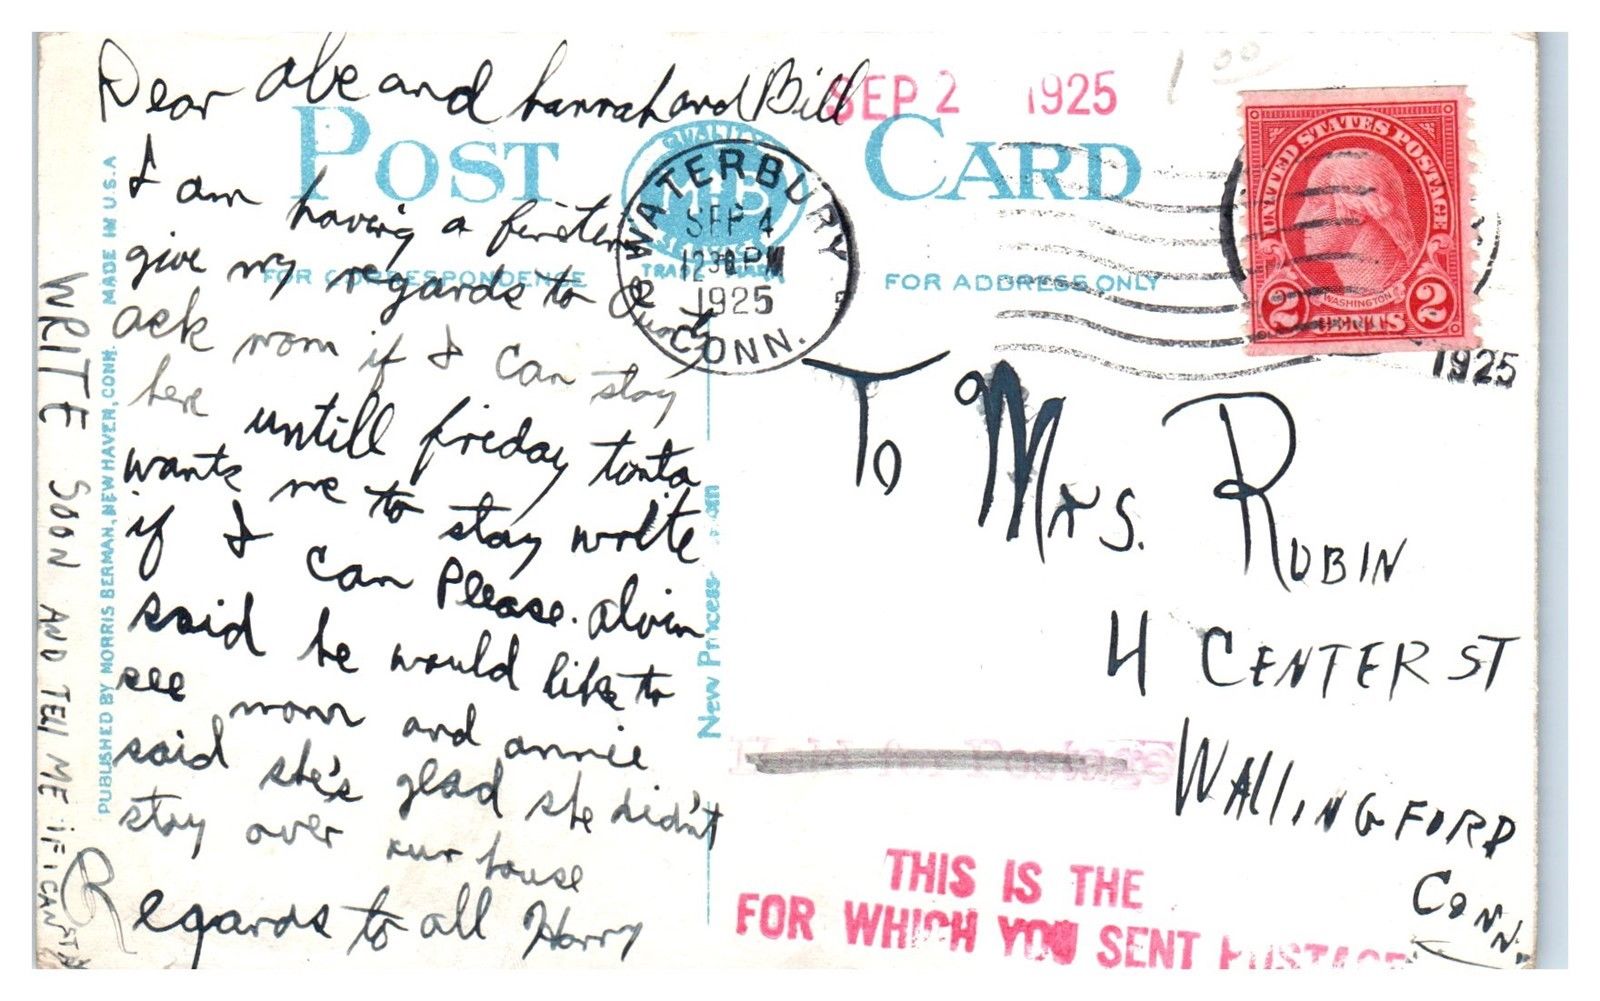 Dear abe and hannah and Bill
I am having a
give my regards to
ask mom if I can stay
here untill friday tonta
wants me to stay write
if I can Please. alvin
said he would like to
see mom and annie
said she's glad she didn't
stay over our house
Regards to all Harry
WRITE SOON AND TELL ME IF I CAN STAY
PUBLISHED BY MORRIS BERMAN, NEW HAVEN, CONN. MADE IN U.S.A
POST CARD
QUALITY
MB
TRADE MARK
FOR CORRESPONDENCE
FOR ADDRESS ONLY
SEP 2 1925
1 00
WATERBURY
SEP 4
12 30 PM
1925
CONN.
UNITED STATES POSTAGE
WASHINGTON
2 CENTS 2
1925
To Mrs. RUBIN
4 CENTER ST
WALLINGFORD
CONN.
New Princess
Held for Postage
THIS IS THE
FOR WHICH YOU SENT POSTAGE